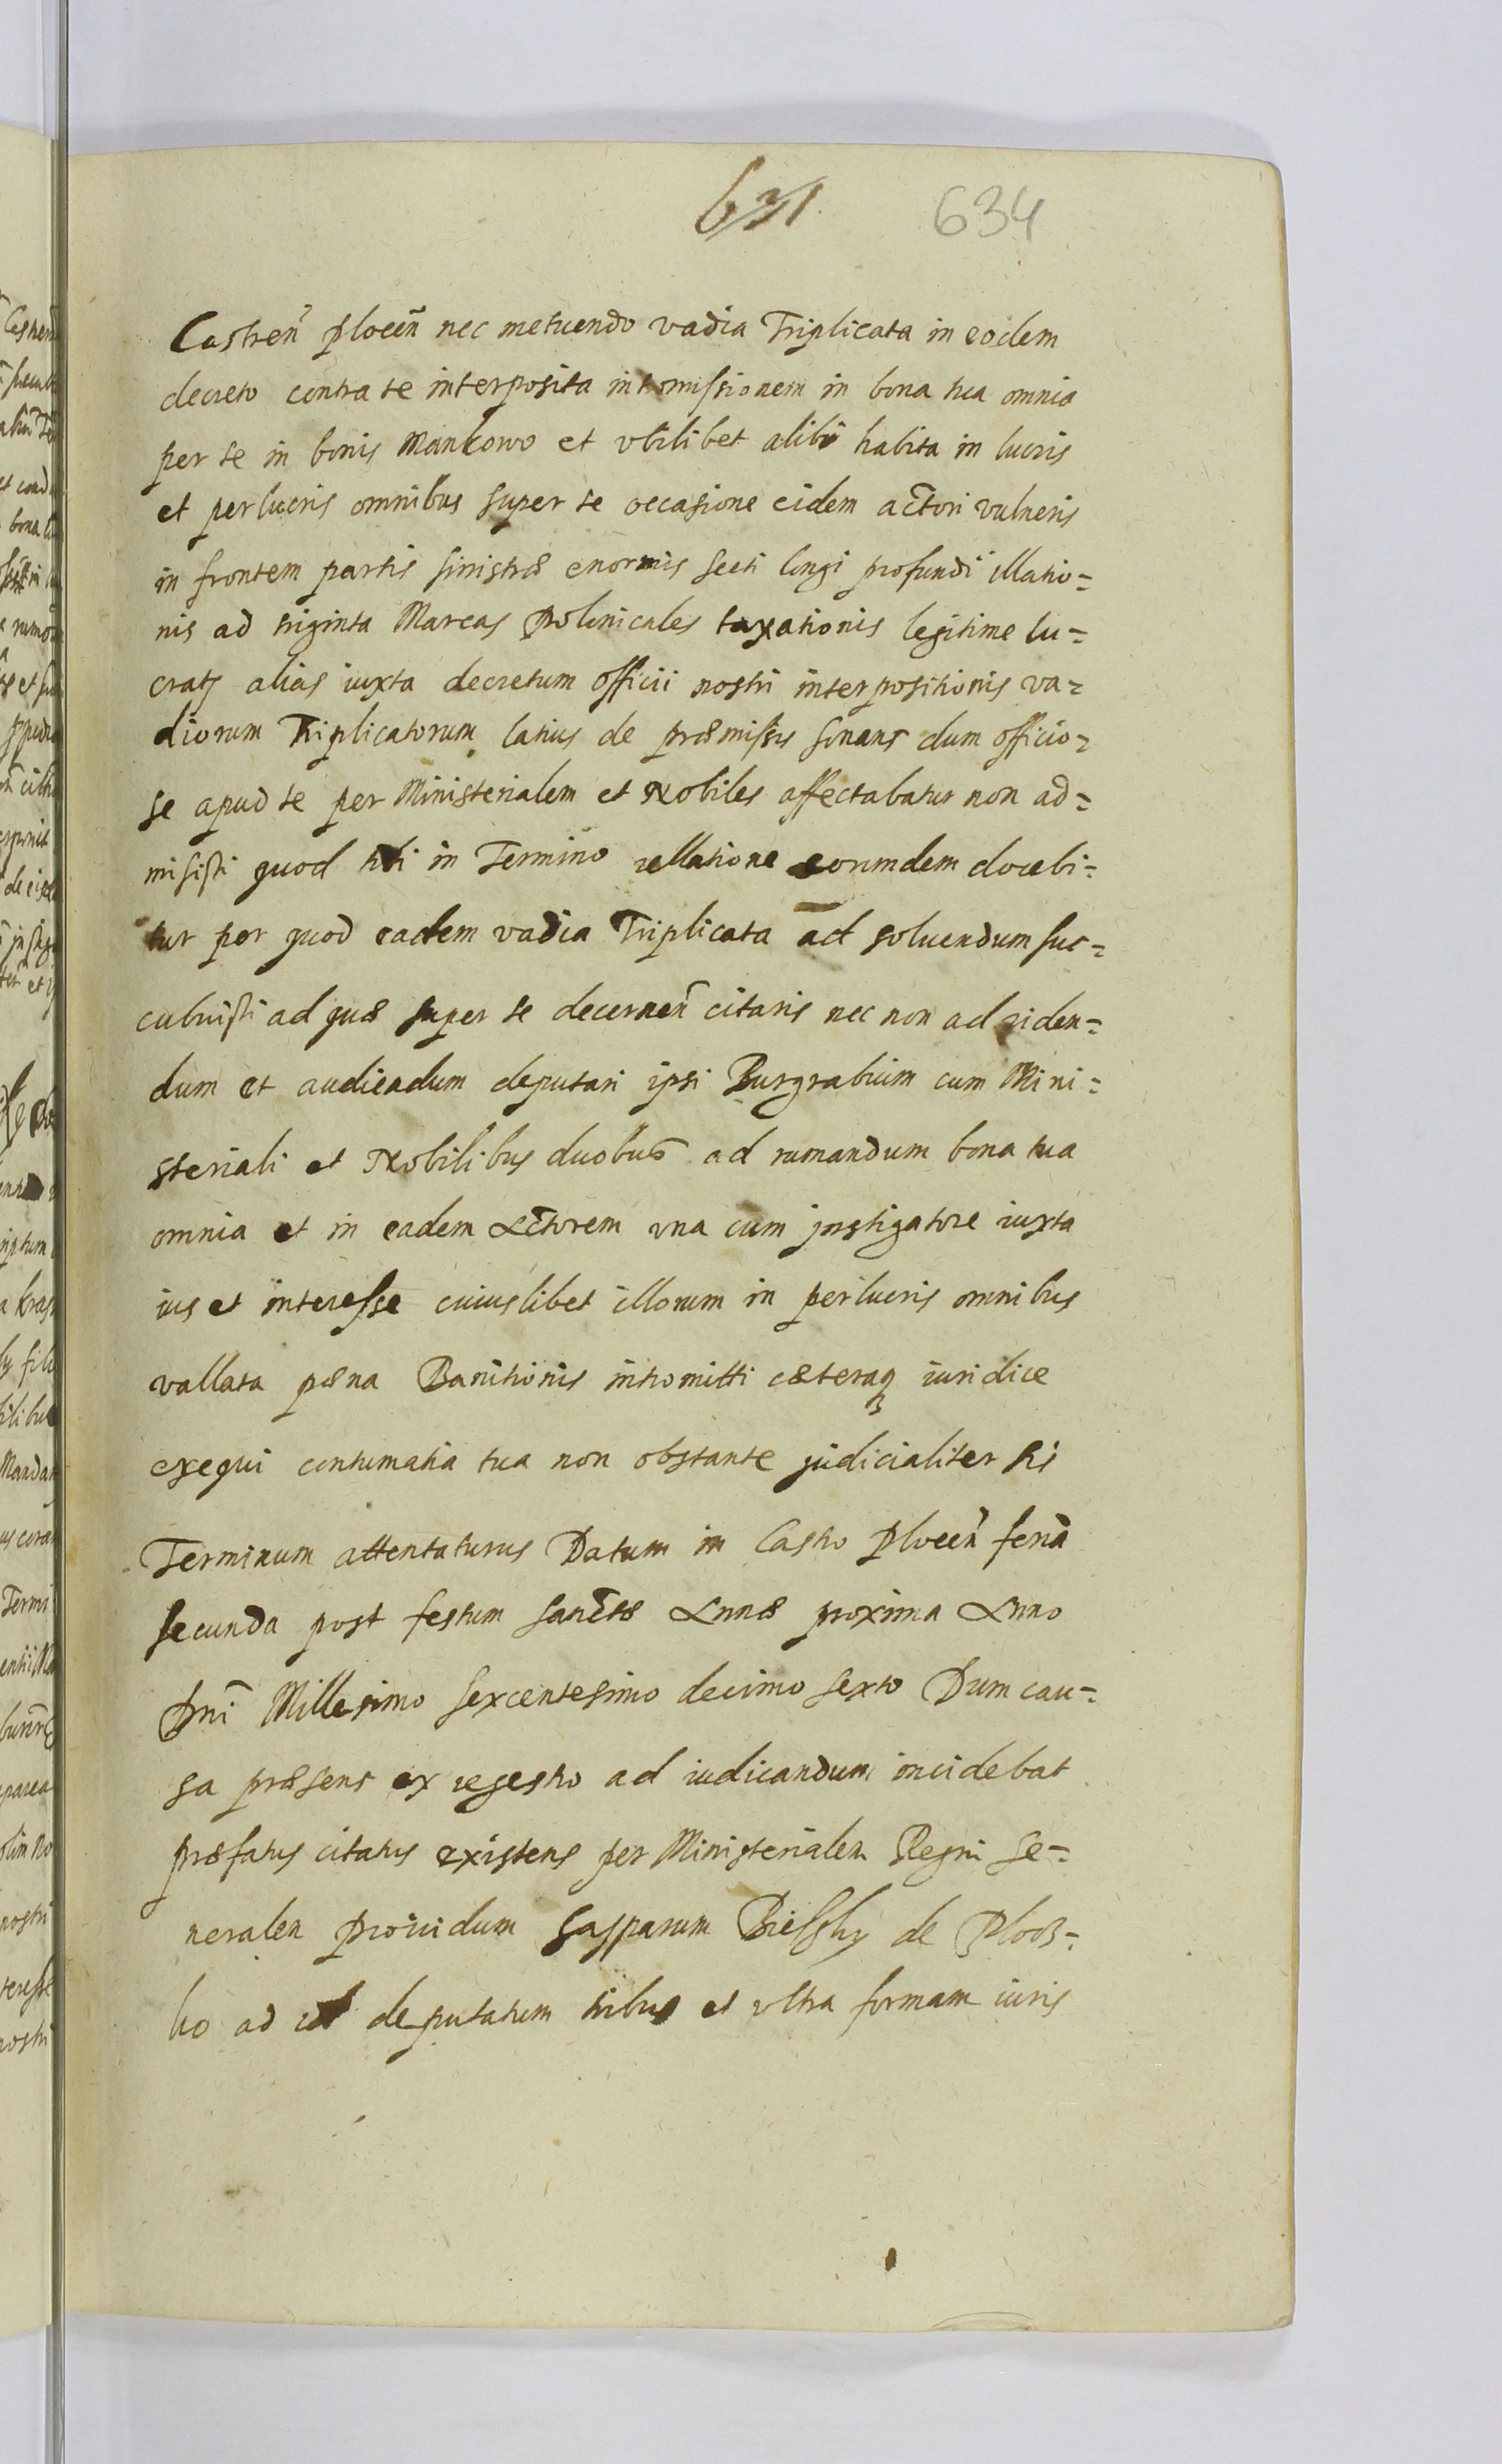 631 634
Castren̄ plocen̄ nec metuendo vadia Triplicata in eodem
decreto contra te interposita intromissionem in bona tua omnia
per te in bonis Mankowo et vbilibet alibi habita in lucris
et perlucris omnibus super te occasione eidem actori vulneris
in frontem partis sinistræ enormis secti longi profundi illatio=
nis ad triginta Marcas polonicales taxationis legitime lu=
cratj alias iuxta decretum officii nostri interpositionis va=
diorum Triplicatorum latius de præmissis sonans dum officio=
se apud te per Ministerialem et Nobiles affectabatur non ad=
misisti quod tibi in Termino rellatione eorumdem docebi=
tur per quod eadem vadia Triplicata ad soluendum suc=
cubuisti ad quæ super te decernen̄ citaris nec non ad viden=
dum et audiendum deputari ipsi Burgrabium cum Mini=
steriali et Nobilibus duobus ad rumandum bona tua
omnia et in eadem Actorem vna cum jnstigatore iuxta
ius et interesse cuiuslibet illorum in perlucris omnibus
vallata pæna Banitionis intromitti cæteraq₃ iuridice
exequi contumatia tua non obstante judicialiter sis
Terminum attentaturus Datum in Castro plocen̄ feria
secunda post festum sanctæ Annæ proxima Anno
Dnī Millesimo sexcentesimo decimo sexto Dum cau=
sa præsens ex regestro ad iudicandum incidebat
præfatus citatus existens per Ministerialem Regni Ge=
neralem prouidum Gasparum Bielsky de Ploos=
ko ad id deputatum tribus et vltra formam iuris